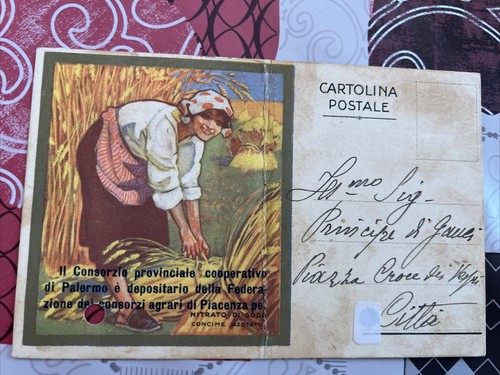 Il Consorzio provinciale cooperativo
di Palermo è depositario della Federa-
zione dei consorzi agrari di Piacenza pe.
NITRATO DI SODA
CONCIME AZOTATO
CARTOLINA
POSTALE
Ill.mo Sig.
Principe di Ganci
Piazza Croce dei Vespri
Città